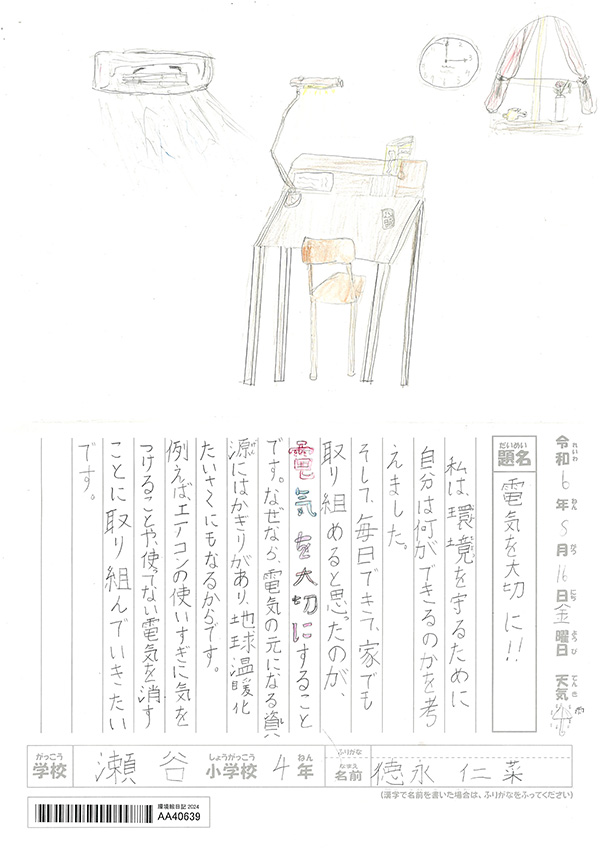 令和6年8月16日金曜日 天気
れいわ ねん がつ にち ようび てんき
だいめい
題名 電気を大切に!!
私は、環境を守るために
自分は何ができるのかを考
えました。
そして、毎日できて、家でも
取り組めると思ったのが、
電気を大切にすること
です。なぜなら、電気の元になる資
源にはかぎりがあり、地球温暖化
たいさくにもなるからです。
例えば、エアコンの使いすぎに気を
つけることや、使ってない電気を消す
ことに取り組んでいきたい
です。
がっこう しょうがっこう ねん ふりがな
学校 瀬谷 小学校 4年 名前 徳永 仁菜
なまえ
(漢字で名前を書いた場合は、ふりがなをふってください)
環境絵日記 2024
AA40639